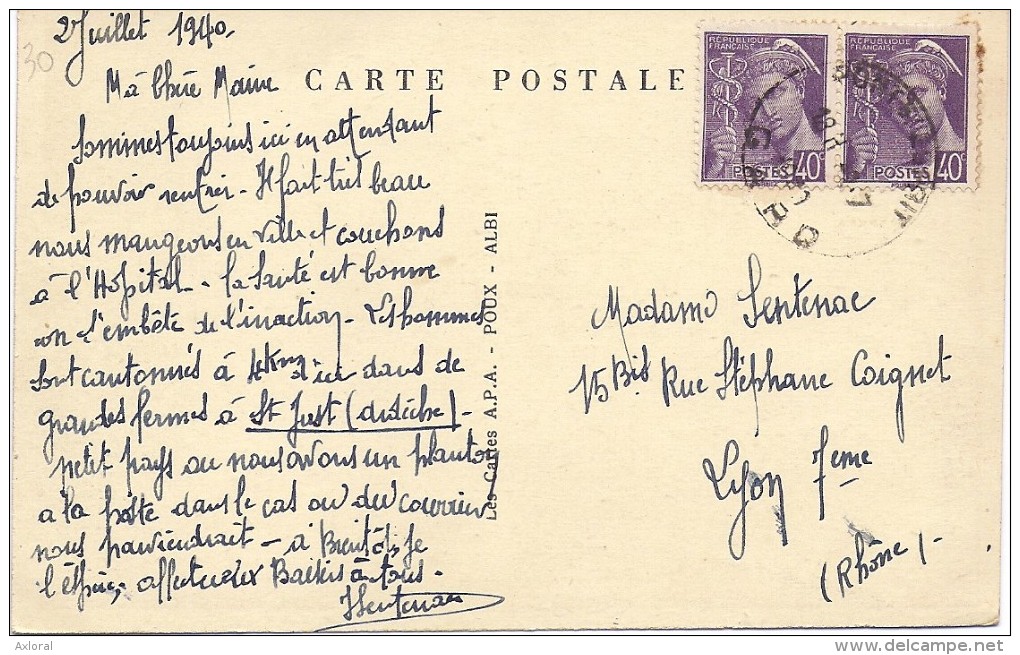 30
2 Juillet 1940.
Ma Chère Marine
CARTE POSTALE
Sommes toujours ici en attendant
de pouvoir rentrer. Il fait très beau
nous mangeons en ville et couchons
à l'Hôpital. La Santé est bonne
on s'embête de l'inaction. Les hommes
sont cantonnés à 4 Kms d'ici dans de
grandes fermes à St Just (Ardèche).
petit pays ou nous avons un planton
à la poste dans le cas ou du courrier
nous parviendrait - à Bientôt, je
l'éspère, affectueux Baisers à tous.
JSentenac
Les Cartes A.P.A. - POUX - ALBI
RÉPUBLIQUE
FRANÇAISE
POSTES 40c
RÉPUBLIQUE
FRANÇAISE
POSTES 40c
Madame Sentenac
15 Bis Rue Stéphane Coignet
Lyon 7eme
(Rhône).
Axloral
www.delcampe.net